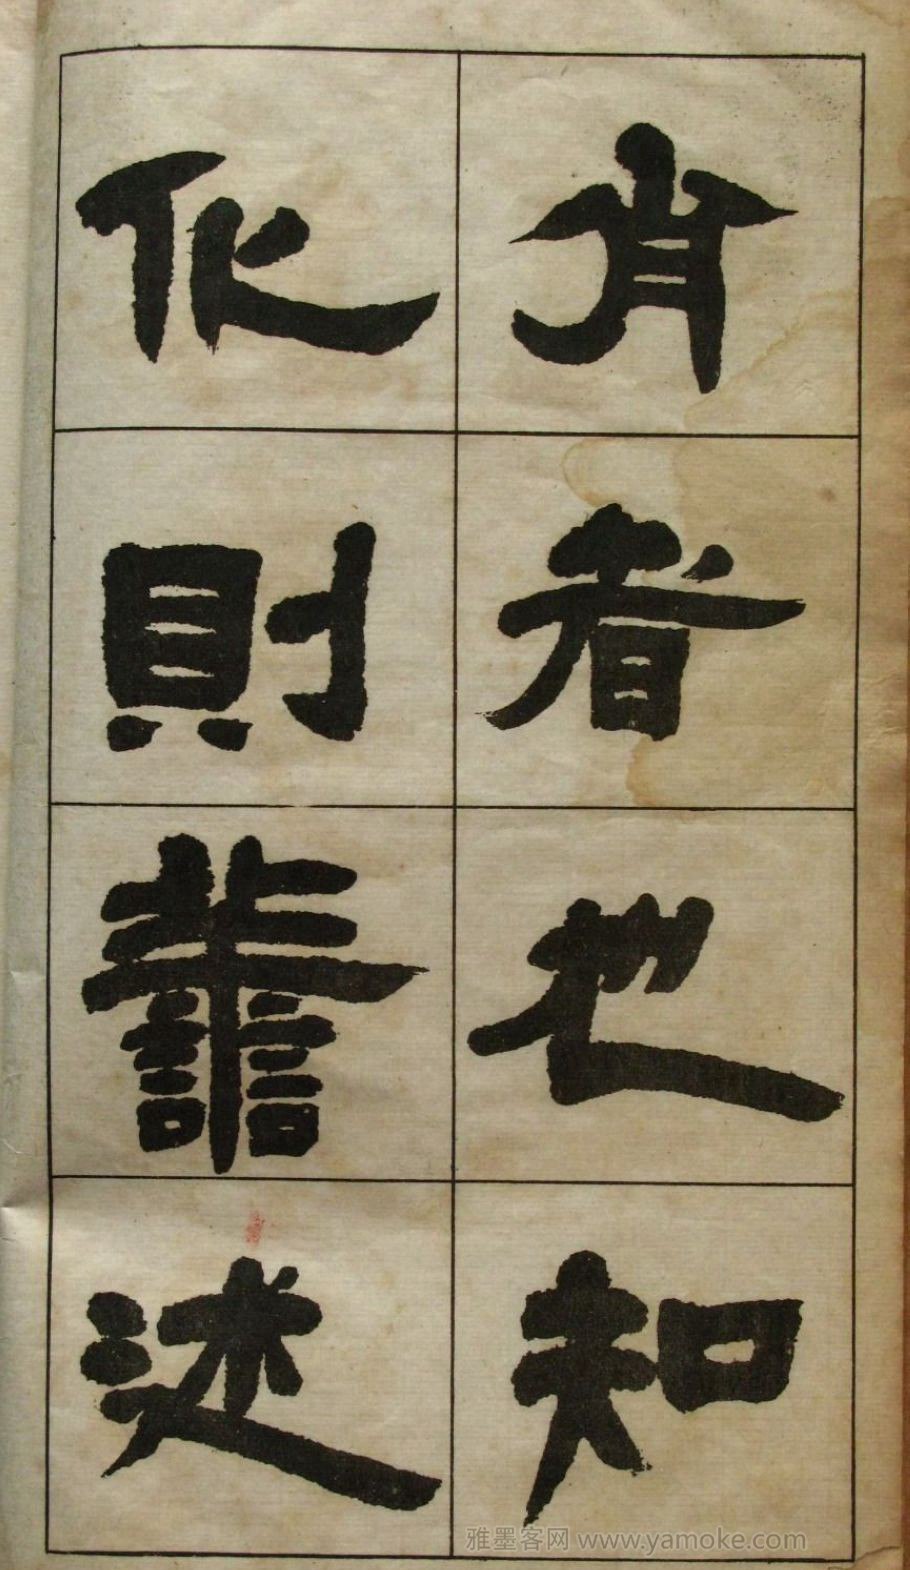 肖者也知
化則譱述
雅墨客网 www.yamoke.com